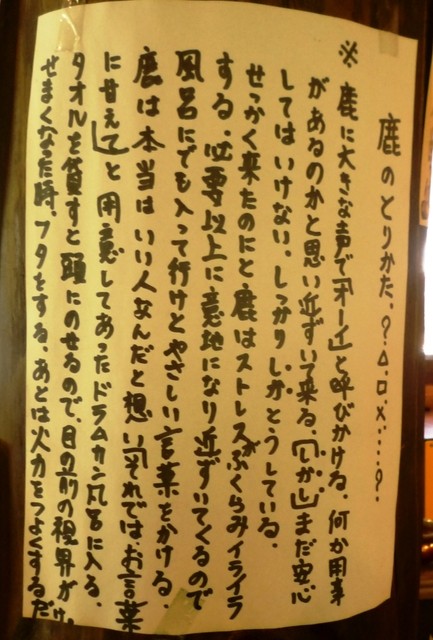 鹿のとりかた.?△.□.×…?
※鹿に大きな声で「オーイ」と呼びかける、何か用事
があるのかと思い近ずいて来る.「しかし」まだ安心
してはいけない。しっかりしかとうしている.
せっかく来たのにと鹿はストレスがふくらみイライラ
する.必要以上に意地になり近ずいてくるので
風呂にでも入って行けとやさしい言葉をかける.
鹿は本当はいい人なんだと想い「それではお言葉
に甘えて」と用意してあったドラムカン風呂に入る.
タオルを貸すと頭にのせるので、目の前の視界が
せまくなった時、フタをする.あとは火力をつよくするだけ。